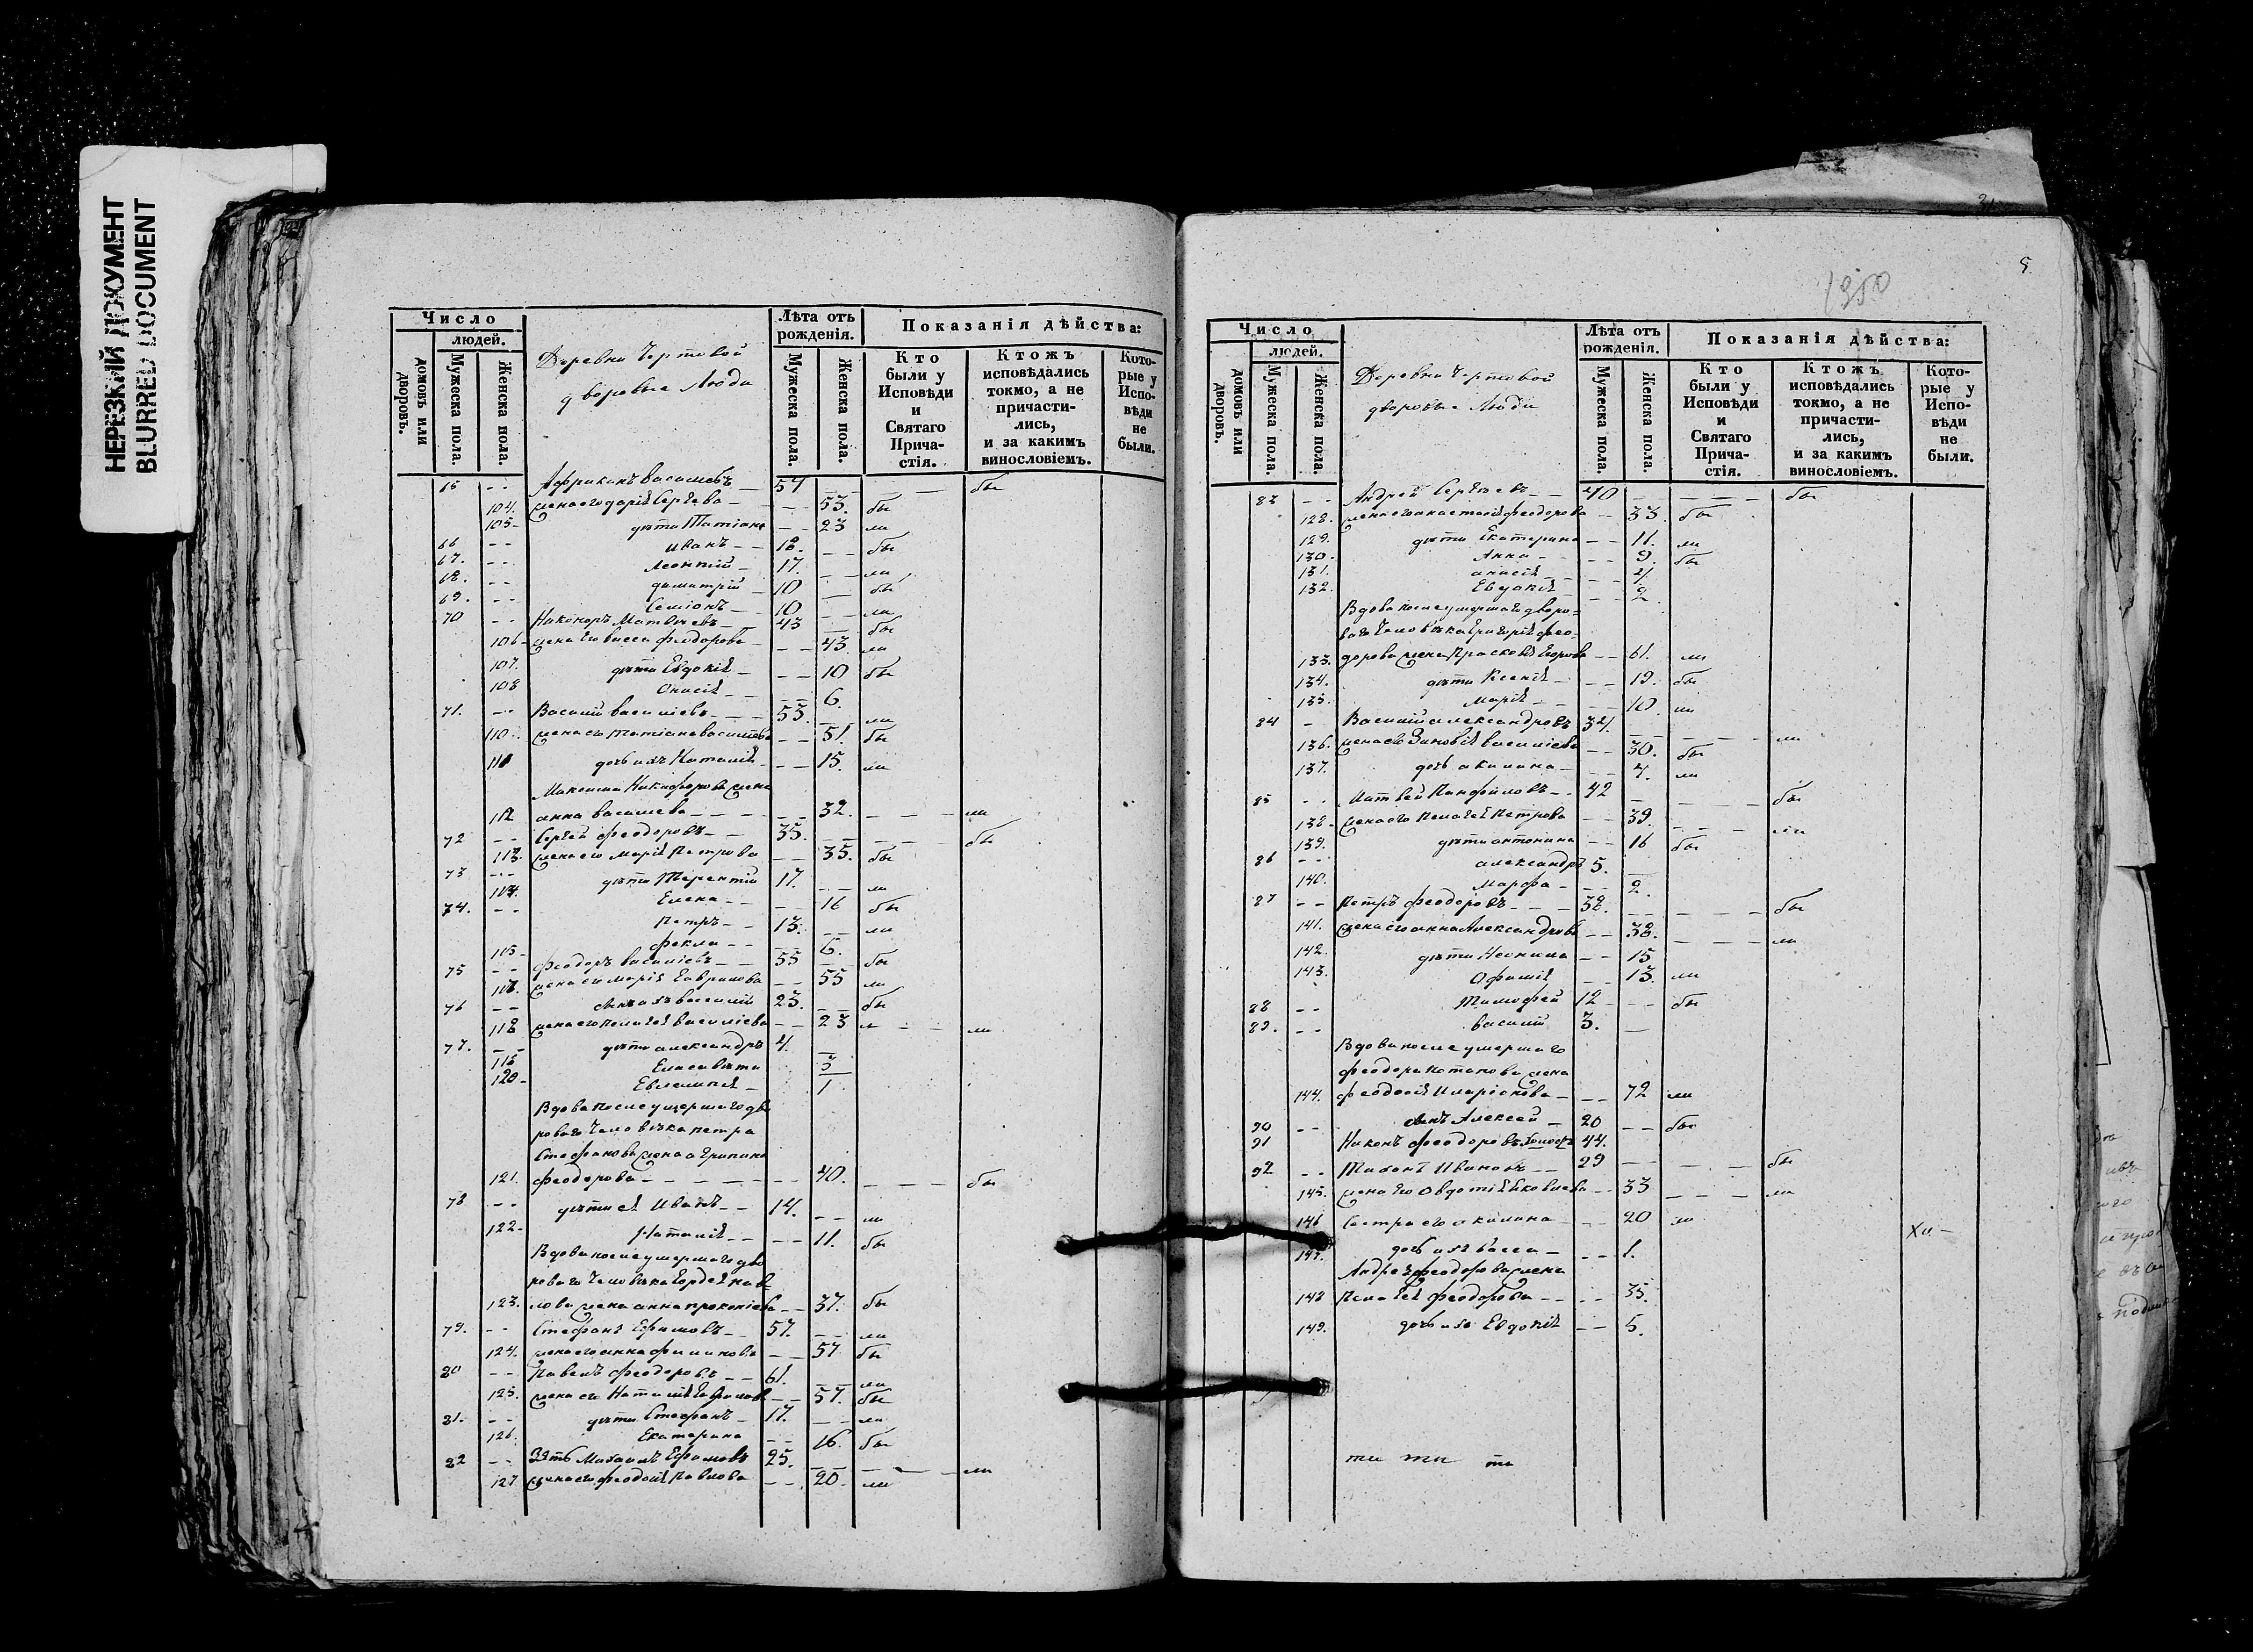 НЕРЕЗКИЙ ДОКУМЕНТ
BLURRED DOCUMENT
Число
людей.
домовъ или дворовъ.
Мужеска пола.
Женска пола.
Деревни Чертовой
дворовые Люди
Лѣта отъ рожденія.
Мужеска пола.
Женска пола.
Показанія дѣйства:
Кто были у Исповѣди и Святаго Прича-стія.
Ктожъ исповѣдались токмо, а не причасти-лись, и за какимъ винословіемъ.
Кото-рые у Испо-вѣди не были.
65 -- Африканъ Васильевъ 57 бы
104. жена его Дарія Сергѣева -- 53. бы
105 - дѣти Татіана -- 23 ли
66 -- Иванъ -- 18. -- бы
67. -- Леонтій - 17. -- ли
68. -- Димитрій 10 бы
69. -- Семіонъ - 10 -- ли
70 -- Никоноръ Матвѣевъ -- 43 бы
106 - жена его Васса Феодорова -- 43. ли
107. дѣти Евдокія - -- 10 бы
108 Онисія -- 6.
71. -- Василій Василіевъ -- 53. -- ли
110 жена его Татіана Василіева -- 51. бы
111 дочь ихъ Наталія -- 15. ли
Максима Никифорова жена
112 Анна Василіева -- 32. --- ли
72 -- Сергѣй Феодоровъ -- 35. бы
113. жена его Марія Петрова -- 35. бы
73 -- дѣти Терентій 17. -- ли
114. Елена -- 16 бы
74. -- Петръ -- 13. -- ли
115 - Фекла -- 6.
75 -- Феодоръ Василіевъ -- 55 - бы
жена его Марія Гаврилова -- 55 ли
76 -- сынъ ихъ Василій 23. -- бы
118 жена его Пелагія Василіева -- 23 --- ли
77. -- дѣти Александръ 4.
Елисавета 3
120 - Евлампія - 1
Вдова после умершаго дво
роваго Человѣка Петра
Стефанова жена Агрипина
121. Феодорова -- 40. --- бы
78 -- дѣти ея Иванъ -- 14. -- ли
122 - Наталія -- 11. бы
Вдова после умершаго дво
роваго Человѣка Гордея
123. жена Анна Прокопіева -- 37. бы
79. -- Стефанъ Ефимовъ -- 57. -- ли
124. жена его Анна Филипова -- 57 бы
80 -- Павелъ Феодоровъ -- 61. -- ли
125. жена его Наталія -- 57. бы
81. -- дѣти Стефанъ - 17. -- ли
126. Екатерина -- 16. бы
82 -- Зять Михаилъ Ефимовъ 25. --- ли
127 жена его Феодосія Павлова -- 20. ли
1350
5.
Число
людей.
домовъ или дворовъ.
Мужеска пола.
Женска пола.
Деревни Чертовой
дворовые Люди
Лѣта отъ рожденія.
Мужеска пола.
Женска пола.
Показанія дѣйства:
Кто были у Исповѣди и Святаго Прича-стія.
Ктожъ исповѣдались токмо, а не причасти-лись, и за какимъ винословіемъ.
Кото-рые у Испо-вѣди не были.
83 -- Андрей Сергѣевъ -- 40 --- бы
128. жена его Анастасія Феодорова -- 33. бы
129. дѣти Екатерина -- 11. ли
130 - Анна -- 9. бы
131. Анисія -- 4.
132. Евдокія -- 2
Вдова после умершаго дворо=
ваго Человѣка Григорія Фео=
133. дорова жена Прасковья Егорова -- 61. ли
134. дѣти Ксенія -- 19. бы
135. Марія -- 10. ли
84 - Василій Александровъ 34. --- ли
136. жена его Зиновія Василіева -- 30. бы
137. дочь Акилина -- 7. ли
85 -- Матвей Панфиловъ -- 42 --- бы
138. жена его Пелагія Петрова -- 39. --- ли
139. дѣти Антонина -- 16 бы
86 -- Александръ 5.
140. Марфа -- 2.
87 -- Петръ Феодоровъ -- 38. --- бы
141. жена его Анна Александрова -- 38. --- ли
142. дѣти Неонила -- 15
143. Офимія -- 13. ли
88 -- Тимофей 12 -- бы
89. -- Василій 3. --
Вдова после умершаго
Феодора Потапова жена
144. Феодосія Иларіонова -- 72 ли
90 -- сынъ Алексей -- 20 -- бы
91 Никонъ Феодоровъ 44.
92 -- Тихонъ Ивановъ -- 29 --- бы
145. жена его Овдотія Яковлева -- 33 --- ли
146 Сестра его Акилина -- 20 ли
147. дочь ихъ Васса -- 1.
Андрея Феодорова жена
148 Пелагія Феодорова -- 35.
149. дочь ихъ Евдокія -- 5.
ти ти ти